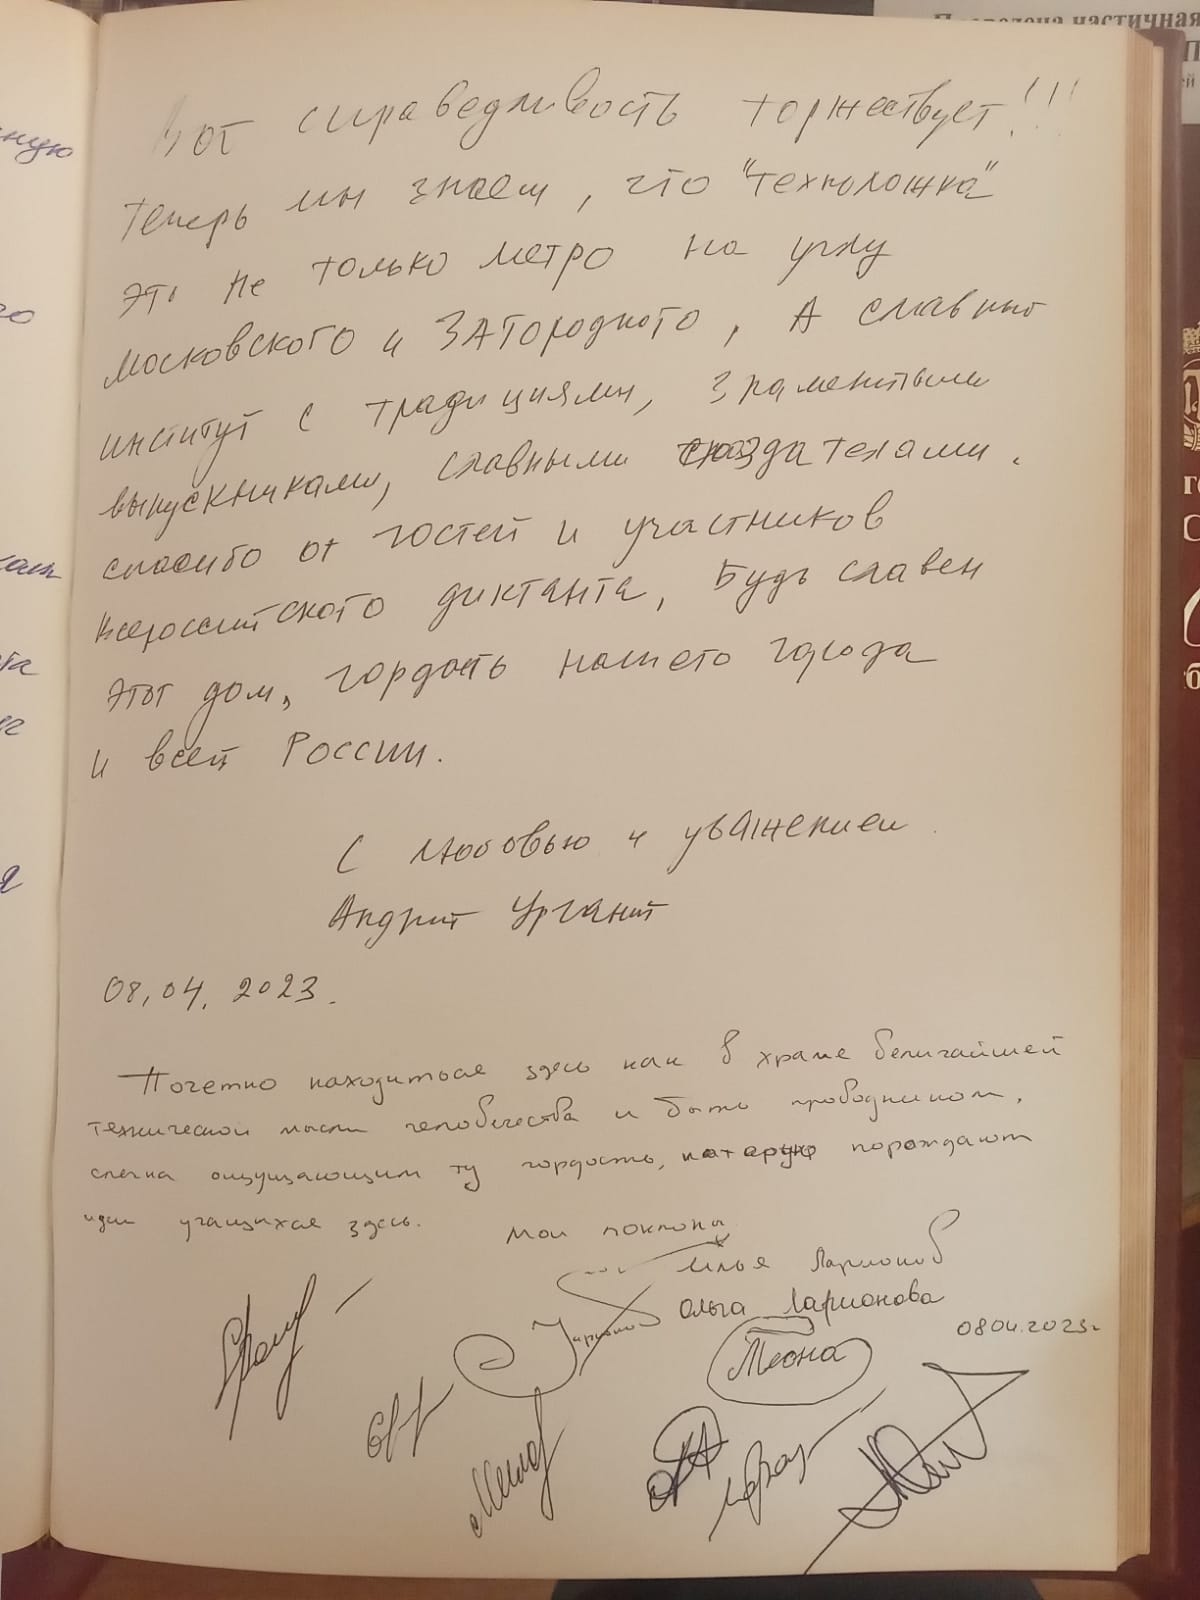 Проведена частичная
ную
Вот справедливость торжествует!!!
теперь мы знаем, что "техноложка"
это не только метро на углу
московского и ЗАГородного, А славный
институт с традициями, знаменитыми
выпускниками, славными создателями.
спасибо от гостей и участников
всероссийского диктанта, Будь славен
этот дом, гордость нашего города
и всей России.
С любовью и уважением
Андрей Ургант
08.04.2023.
Почетно находиться здесь как в храме величайшей
технической мысли человечества и быть проводником,
слегка ощущающим ту гордость, которую порождают
идеи учащихся здесь. Мои поклоны
Илья Ларионов
Ольга Ларионова
08.04.2023г
Теона